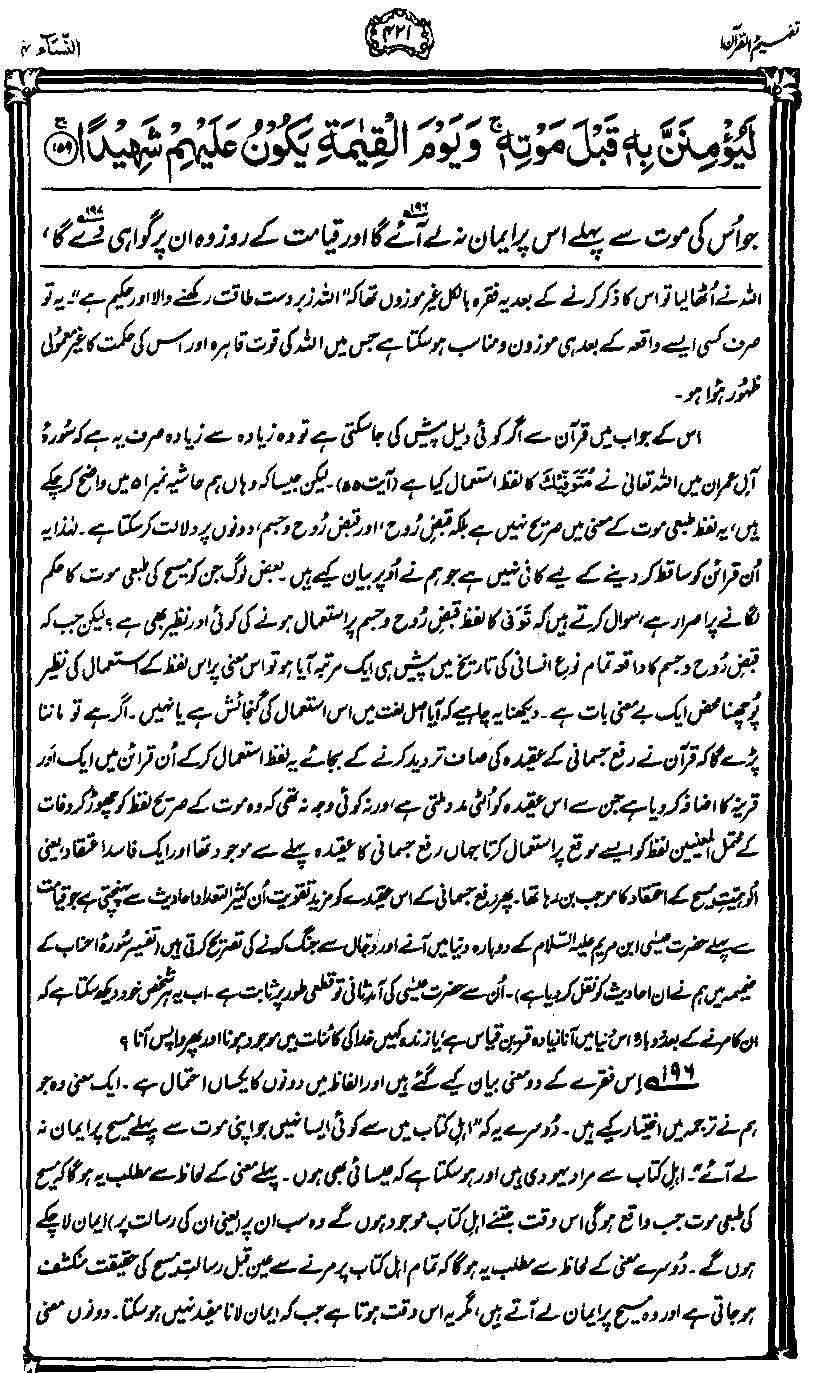 تفہیم القرآن ۱
۴۲۱
النسآء ۴
لَيُؤْمِنَنَّ بِهٖ قَبْلَ مَوْتِهٖ ۚ وَيَوْمَ الْقِيٰمَةِ يَكُوْنُ عَلَيْهِمْ شَهِيْدًا ۝۱۵۹
جو اُس کی موت سے پہلے اس پر ایمان نہ لے آئے گا۱۹۶ اور قیامت کے روز وہ ان پر گواہی دے گا،۱۹۷
اللہ نے اُٹھا لیا تو اس کا ذکر کرنے کے بعد یہ فقرہ بالکل غیر موزوں تھا کہ "اللہ زبردست طاقت رکھنے والا اور حکیم ہے"۔ یہ تو
صرف کسی ایسے واقعہ کے بعد ہی موزون و مناسب ہو سکتا ہے جس میں اللہ کی قوت قاہرہ اور اس کی حکمت کا غیر معمولی
ظہور ہُوا ہو۔
اس کے جواب میں قرآن سے اگر کوئی دلیل پیش کی جا سکتی ہے تو وہ زیادہ سے زیادہ صرف یہ ہے کہ سُورۂ
آلِ عمران میں اللہ تعالیٰ نے مُتَوَفِّيْكَ کا لفظ استعمال کیا ہے (آیت ۵۵)۔ لیکن جیسا کہ وہاں ہم حاشیہ نمبر ۵۱ میں واضح کر چکے
ہیں، یہ لفظ طبعی موت کے معنی میں صریح نہیں ہے بلکہ قبضِ رُوح، اور قبضِ رُوح و جسم، دونوں پر دلالت کر سکتا ہے۔ لہٰذا یہ
اُن قرائن کو ساقط کر دینے کے لیے کافی نہیں ہے جو ہم نے اُوپر بیان کیے ہیں۔ بعض لوگ جن کو مسیح کی طبعی موت کا حکم
لگانے پر اصرار ہے، سوال کرتے ہیں کہ تَوَفّی کا لفظ قبضِ رُوح و جسم پر استعمال ہونے کی کوئی اور نظیر بھی ہے؟ لیکن جب کہ
قبضِ رُوح و جسم کا واقعہ تمام نوعِ انسانی کی تاریخ میں پیش ہی ایک مرتبہ آیا ہو تو اس معنی پر اس لفظ کے استعمال کی نظیر
پُوچھنا محض ایک بے معنی بات ہے۔ دیکھنا یہ چاہیے کہ آیا اصل لغت میں اس استعمال کی گنجائش ہے یا نہیں۔ اگر ہے تو ماننا
پڑے گا کہ قرآن نے رفعِ جسمانی کے عقیدہ کی صاف تردید کرنے کے بجائے یہ لفظ استعمال کر کے اُن قرائن میں ایک اور
قرینہ کا اضافہ کر دیا ہے جن سے اس عقیدہ کو اُلٹی مدد ملتی ہے، ورنہ کوئی وجہ نہ تھی کہ وہ موت کے صریح لفظ کو چھوڑ کر وفات
کے محتمل المعنیین لفظ کو ایسے موقع پر استعمال کرتا جہاں رفعِ جسمانی کا عقیدہ پہلے سے موجود تھا اور ایک فاسد اعتقاد، یعنی
اُلوہیتِ مسیح کے اعتقاد کا موجب بن رہا تھا۔ پھر رفعِ جسمانی کے اس عقیدے کو مزید تقویت اُن کثیر التعداد احادیث سے پہنچتی ہے جو قیامت
سے پہلے حضرت عیسیٰ ابن مریم علیہ السّلام کے دوبارہ دنیا میں آنے اور دجّال سے جنگ کرنے کی تصریح کرتی ہیں (تفسیر سُورۂ احزاب کے
ضمیمہ میں ہم نے ان احادیث کو نقل کر دیا ہے)۔ اُن سے حضرت عیسیٰ کی آمدِ ثانی تو قطعی طور پر ثابت ہے۔ اب یہ ہر شخص خود دیکھ سکتا ہے کہ
ان کا مرنے کے بعد دوبارہ اس دُنیا میں آنا زیادہ قرینِ قیاس ہے، یا زندہ کہیں خدا کی کائنات میں موجود ہونا اور پھر واپس آنا؟
۱۹۶؎ اِس فقرے کے دو معنی بیان کیے گئے ہیں اور الفاظ میں دونوں کا یکساں احتمال ہے۔ ایک معنی وہ جو
ہم نے ترجمہ میں اختیار کیے ہیں۔ دُوسرے یہ کہ "اہلِ کتاب میں سے کوئی ایسا نہیں جو اپنی موت سے پہلے مسیح پر ایمان نہ
لے آئے"۔ اہلِ کتاب سے مراد یہودی ہیں اور ہو سکتا ہے کہ عیسائی بھی ہوں۔ پہلے معنی کے لحاظ سے مطلب یہ ہوگا کہ مسیح
کی طبعی موت جب واقع ہوگی اس وقت جتنے اہلِ کتاب موجود ہوں گے وہ سب ان پر (یعنی ان کی رسالت پر) ایمان لا چکے
ہوں گے۔ دُوسرے معنی کے لحاظ سے مطلب یہ ہوگا کہ تمام اہلِ کتاب پر مرنے سے عین قبل رسالتِ مسیح کی حقیقت منکشف
ہو جاتی ہے اور وہ مسیح پر ایمان لے آتے ہیں، مگر یہ اس وقت ہوتا ہے جب کہ ایمان لانا مفید نہیں ہو سکتا۔ دونوں معنی